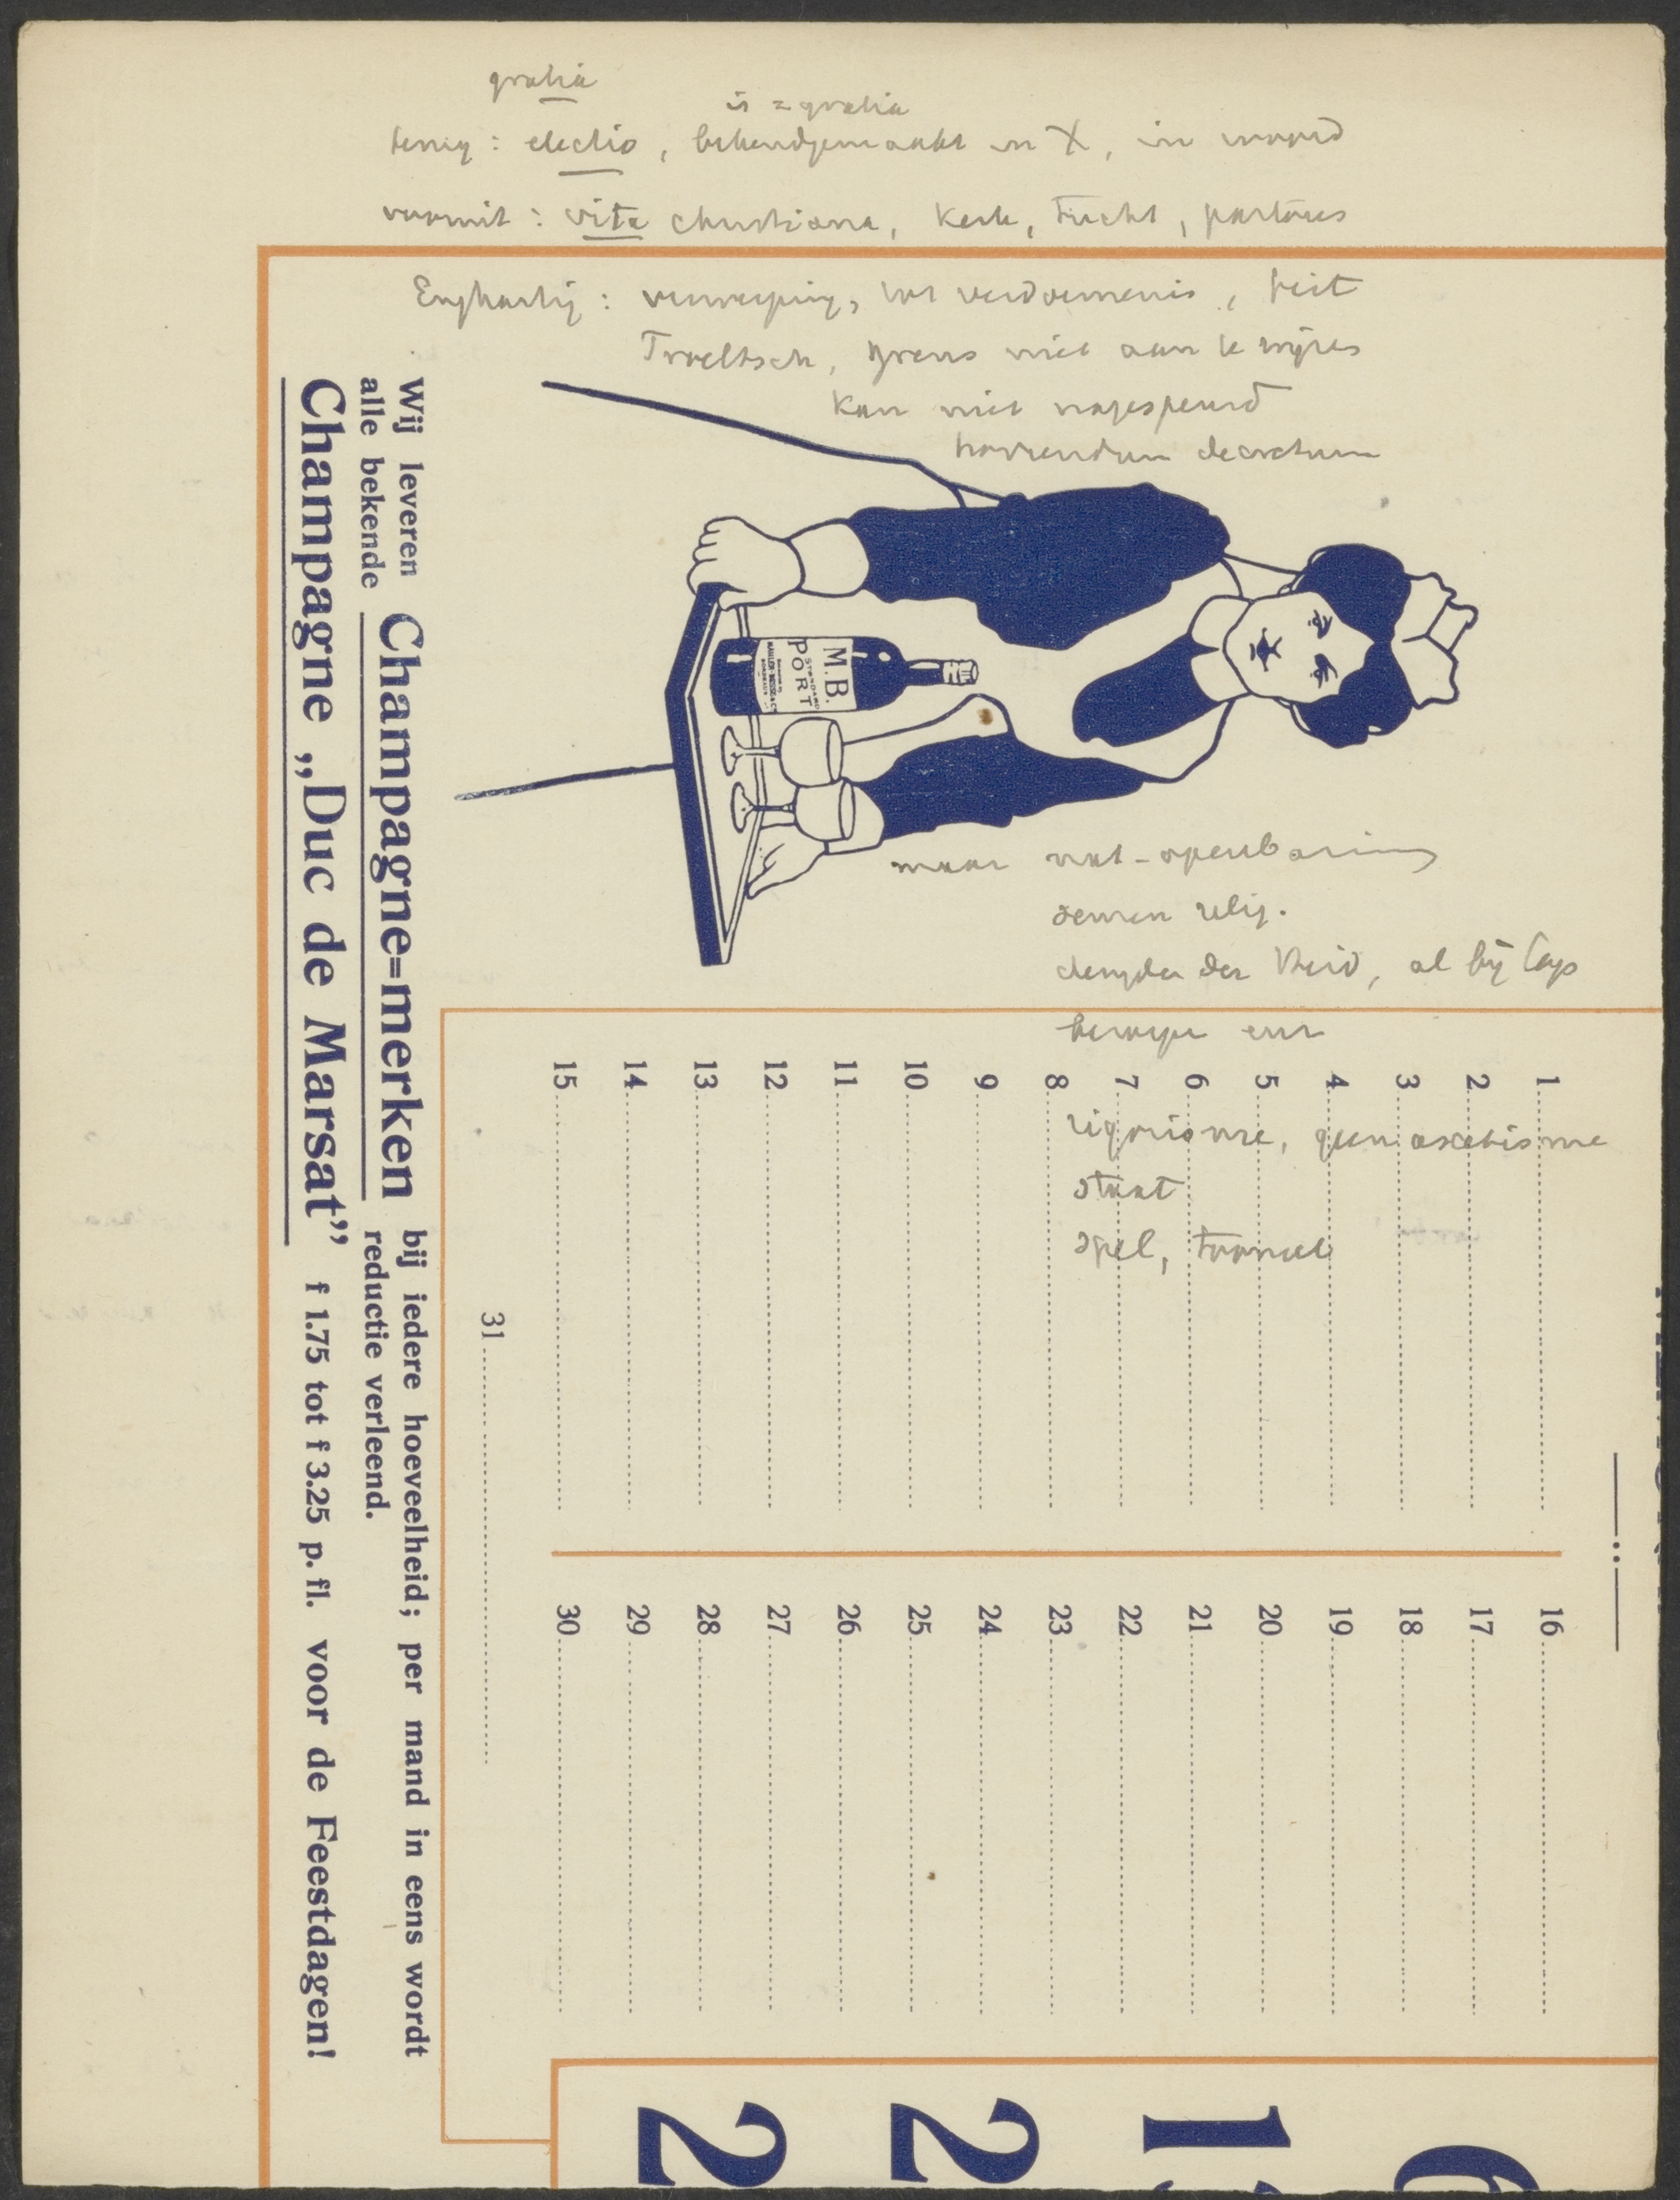 gratia
is = gratia
terug : electio, bekendgemaakt in X, in woord
vooruit : vita christiana, Kerk, Tucht, pastores
Enghartij : verwerping, tot verdoemenis, feit
Troeltsch, grens niet aan te wijzen
Kan niet nagespeurd
horrendum decretum
maar nat-openbaring
semen relig.
der Heid, al bij Cap
rigorisme, geen ascetisme
staat
spel, tooneel
Wij leveren alle bekende Champagne=merken bij iedere hoeveelheid; per mand in eens wordt reductie verleend.
Champagne „Duc de Marsat” f 1.75 tot f 3.25 p. fl. voor de Feestdagen!
M.B.
PORT
1
2
3
4
5
6
7
8
9
10
11
12
13
14
15
16
17
18
19
20
21
22
23
24
25
26
27
28
29
30
31
6
1
2
2